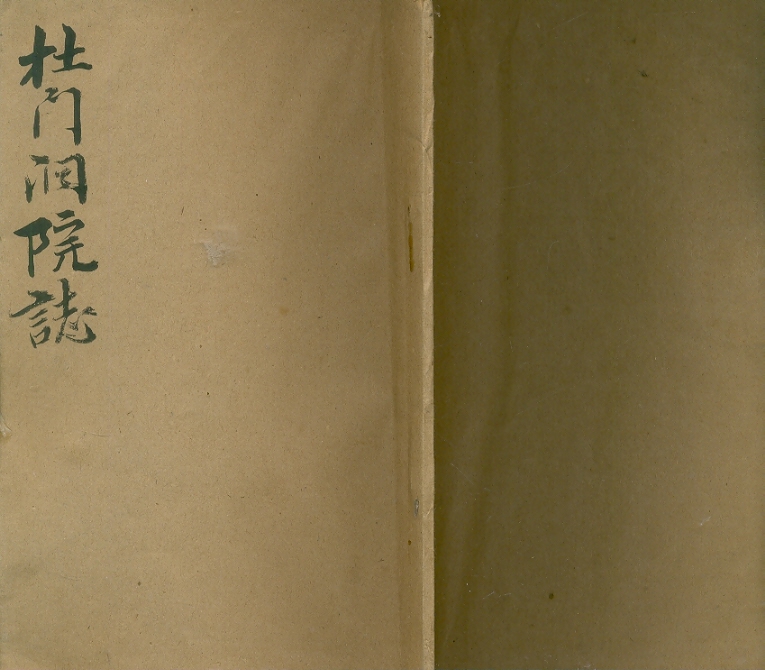 杜门洞院誌